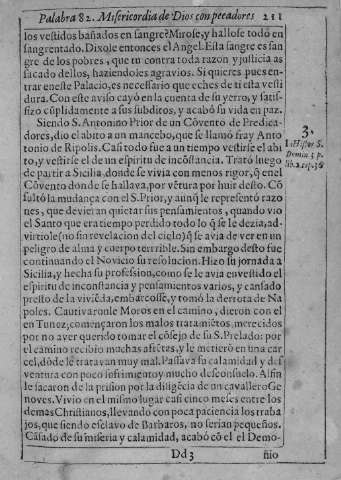 Palabra 82. Misericordia de Dios con pecadores 211
los vestidos bañados en sangre? Mirose, y hallose todo en
sangrentado. Dixole entonces el Angel. Esta sangre es san
gre de los pobres, que tu contra toda razon y justicia as
sacado dellos, haziendoles agravios. Si quieres pues en-
trar en este Palacio, es necessario que eches de ti esta vesti
dura. Con este aviso cayó en la cuenta de su yerro, y satis-
fizo cũplidamente a sus subditos, y acabó su vida en paz.
Siendo S. Antonino Prior de un Cõvento de Predica-
dores, dio el abito a un mancebo, que se llamó fray Anto
tonio de Ripolis. Casi todo fue a un tiempo vestirse el abi
to, y vestirse el de un espiritu de incõstancia. Trató luego
de partir a Sicilia, donde se vivia con menos rigor, q̃ en el
Cõvento donde se hallava, por vẽtura por huir desto. Cõ
sultó la mudança con el S. Prior, y aunq̃ le representó razo
nes, que devieran quietar sus pensamientos, quando vio
el Santo que era tiempo perdido todo lo q̃ se le dezia, ad-
virtiole (no sin revelacion del cielo) q̃ se avia de ver en un
peligro de alma y cuerpo terrrible. Sin embargo desto fue
continuando el Novicio su resolucion. Hizo su jornada a
Sicilia, y hecha su profession, como se le avia envestido el
espiritu de inconstancia y pensamientos varios, y cansado
presto de la viviẽda, embarcosse, y tomó la derrota de Na
poles. Cautivaronle Moros en el camino, dieron con el
en Tunez, començaron los malos tratamiẽtos, merecidos
por no aver querido tomar el cõsejo de su S. Prelado: por
el camino recibio muchas afrẽtas, y le metierõ en una car
cel, dõde le tratavan muy mal. Passava su calamidad y des
ventura con poco sofrimiento y mucho desconsuelo. Al fin
le sacaron de la prision por la diligẽcia de un cavallero Ge
noves. Vivio en el mismo lugar casi cinco meses entre los
demas Christianos, llevando con poca paciencia los traba
jos, que siendo esclavo de Barbaros, no serian pequeños.
Cãsado de su miseria y calamidad, acabó cõ el el Demo-
Dd 3 ñio
3.